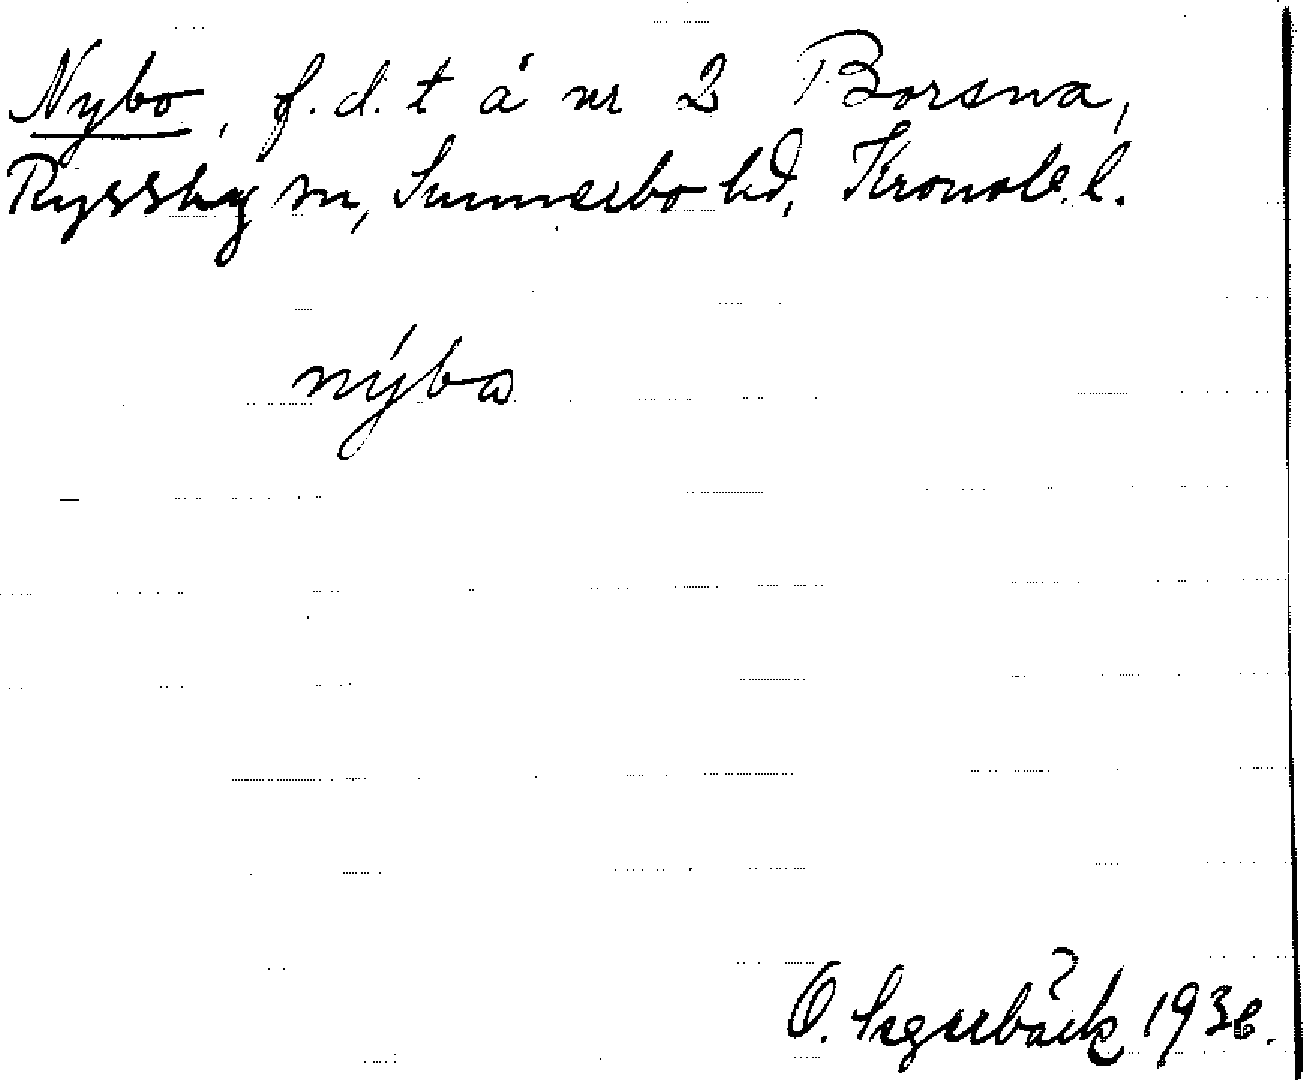 Nybo, f.d. t å nr 2 Borsna,
Ryssby sn, Sunnerbo hd, Kronob. l.
nýbo
O. Segerbäck 1936.